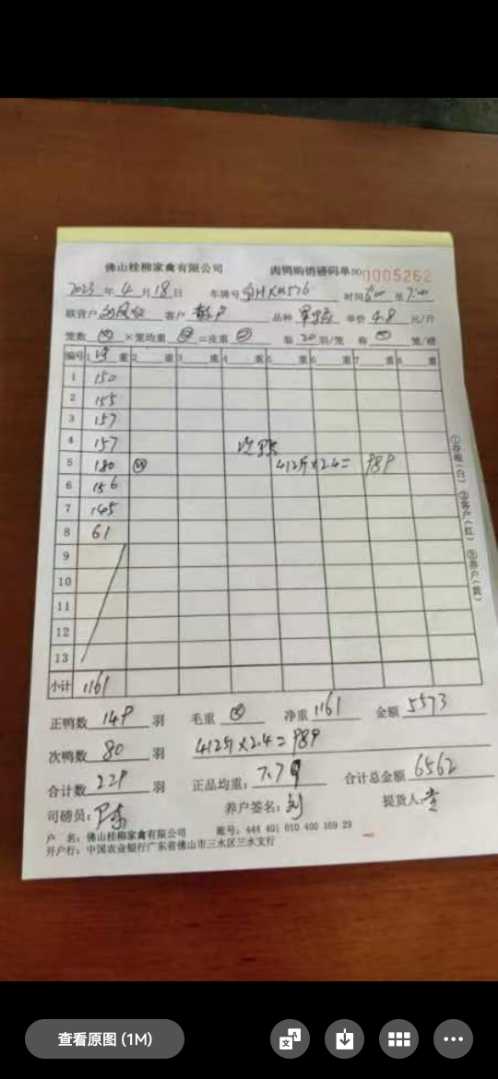 佛山桂柳家禽有限公司 肉鸭购销磅码单 NO 0005262
2023 年 4 月 18 日 车牌号 时间 6:00 至 7:00
联营户 客户 散户 品种 单价 4.8 元/斤
笼数 × 笼均重 = 皮重 装 20 羽/笼 称 笼/磅
编号 1 净 重 2 重 3 重 4 重 5 重 6 重 7 重 8 重
1 150
2 155
3 157
4 157 次鸭
5 180 412斤×2.4= 989
6 156
7 145
8 61
9
10
11
12
13
小计 1161
①存根(白) ②客户(红) ③养户(黄)
正鸭数 149 羽 毛重 净重 1161 金额 5573
次鸭数 80 羽 412斤×2.4=989
合计数 229 羽 正品均重: 7.79 合计总金额 6562
司磅员: 养户签名: 提货人
户 名: 佛山桂柳家禽有限公司 账号: 444 491 010 400 169 29
开户行: 中国农业银行广东省佛山市三水区三水支行
查看原图 (1M)